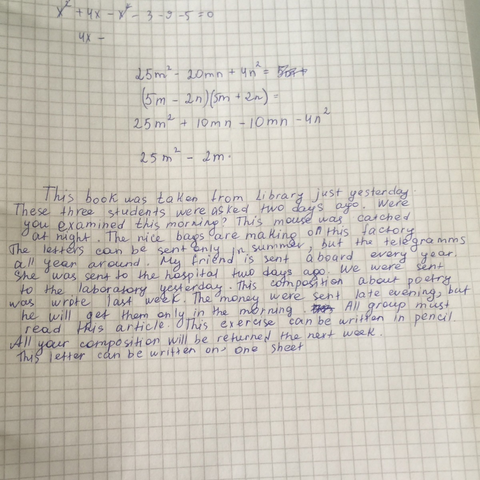 x² + 4x - x² - 3 - 9 - 5 = 0
4x -
25m² - 20mn + 4n² =
(5m - 2n)(5m + 2n) =
25m² + 10mn - 10mn - 4n²
25m² - 2m.
This book was taken from Library just yesterday.
These three students were asked two days ago. Were
you examined this morning? This mouse was catched
at night. The nice bags are making on this factory
The letters can be sent only in summer, but the telegramms
all year around. My friend is sent aboard every year.
She was sent to the hospital two days ago. We were sent
to the laboratory yesterday. This composition about poetry
was wrote last week. The money were sent late evening, but
he will get them only in the morning. All group must
read this article. This exercise can be written in pencil
All your composition will be returned the next week.
This letter can be written on one sheet